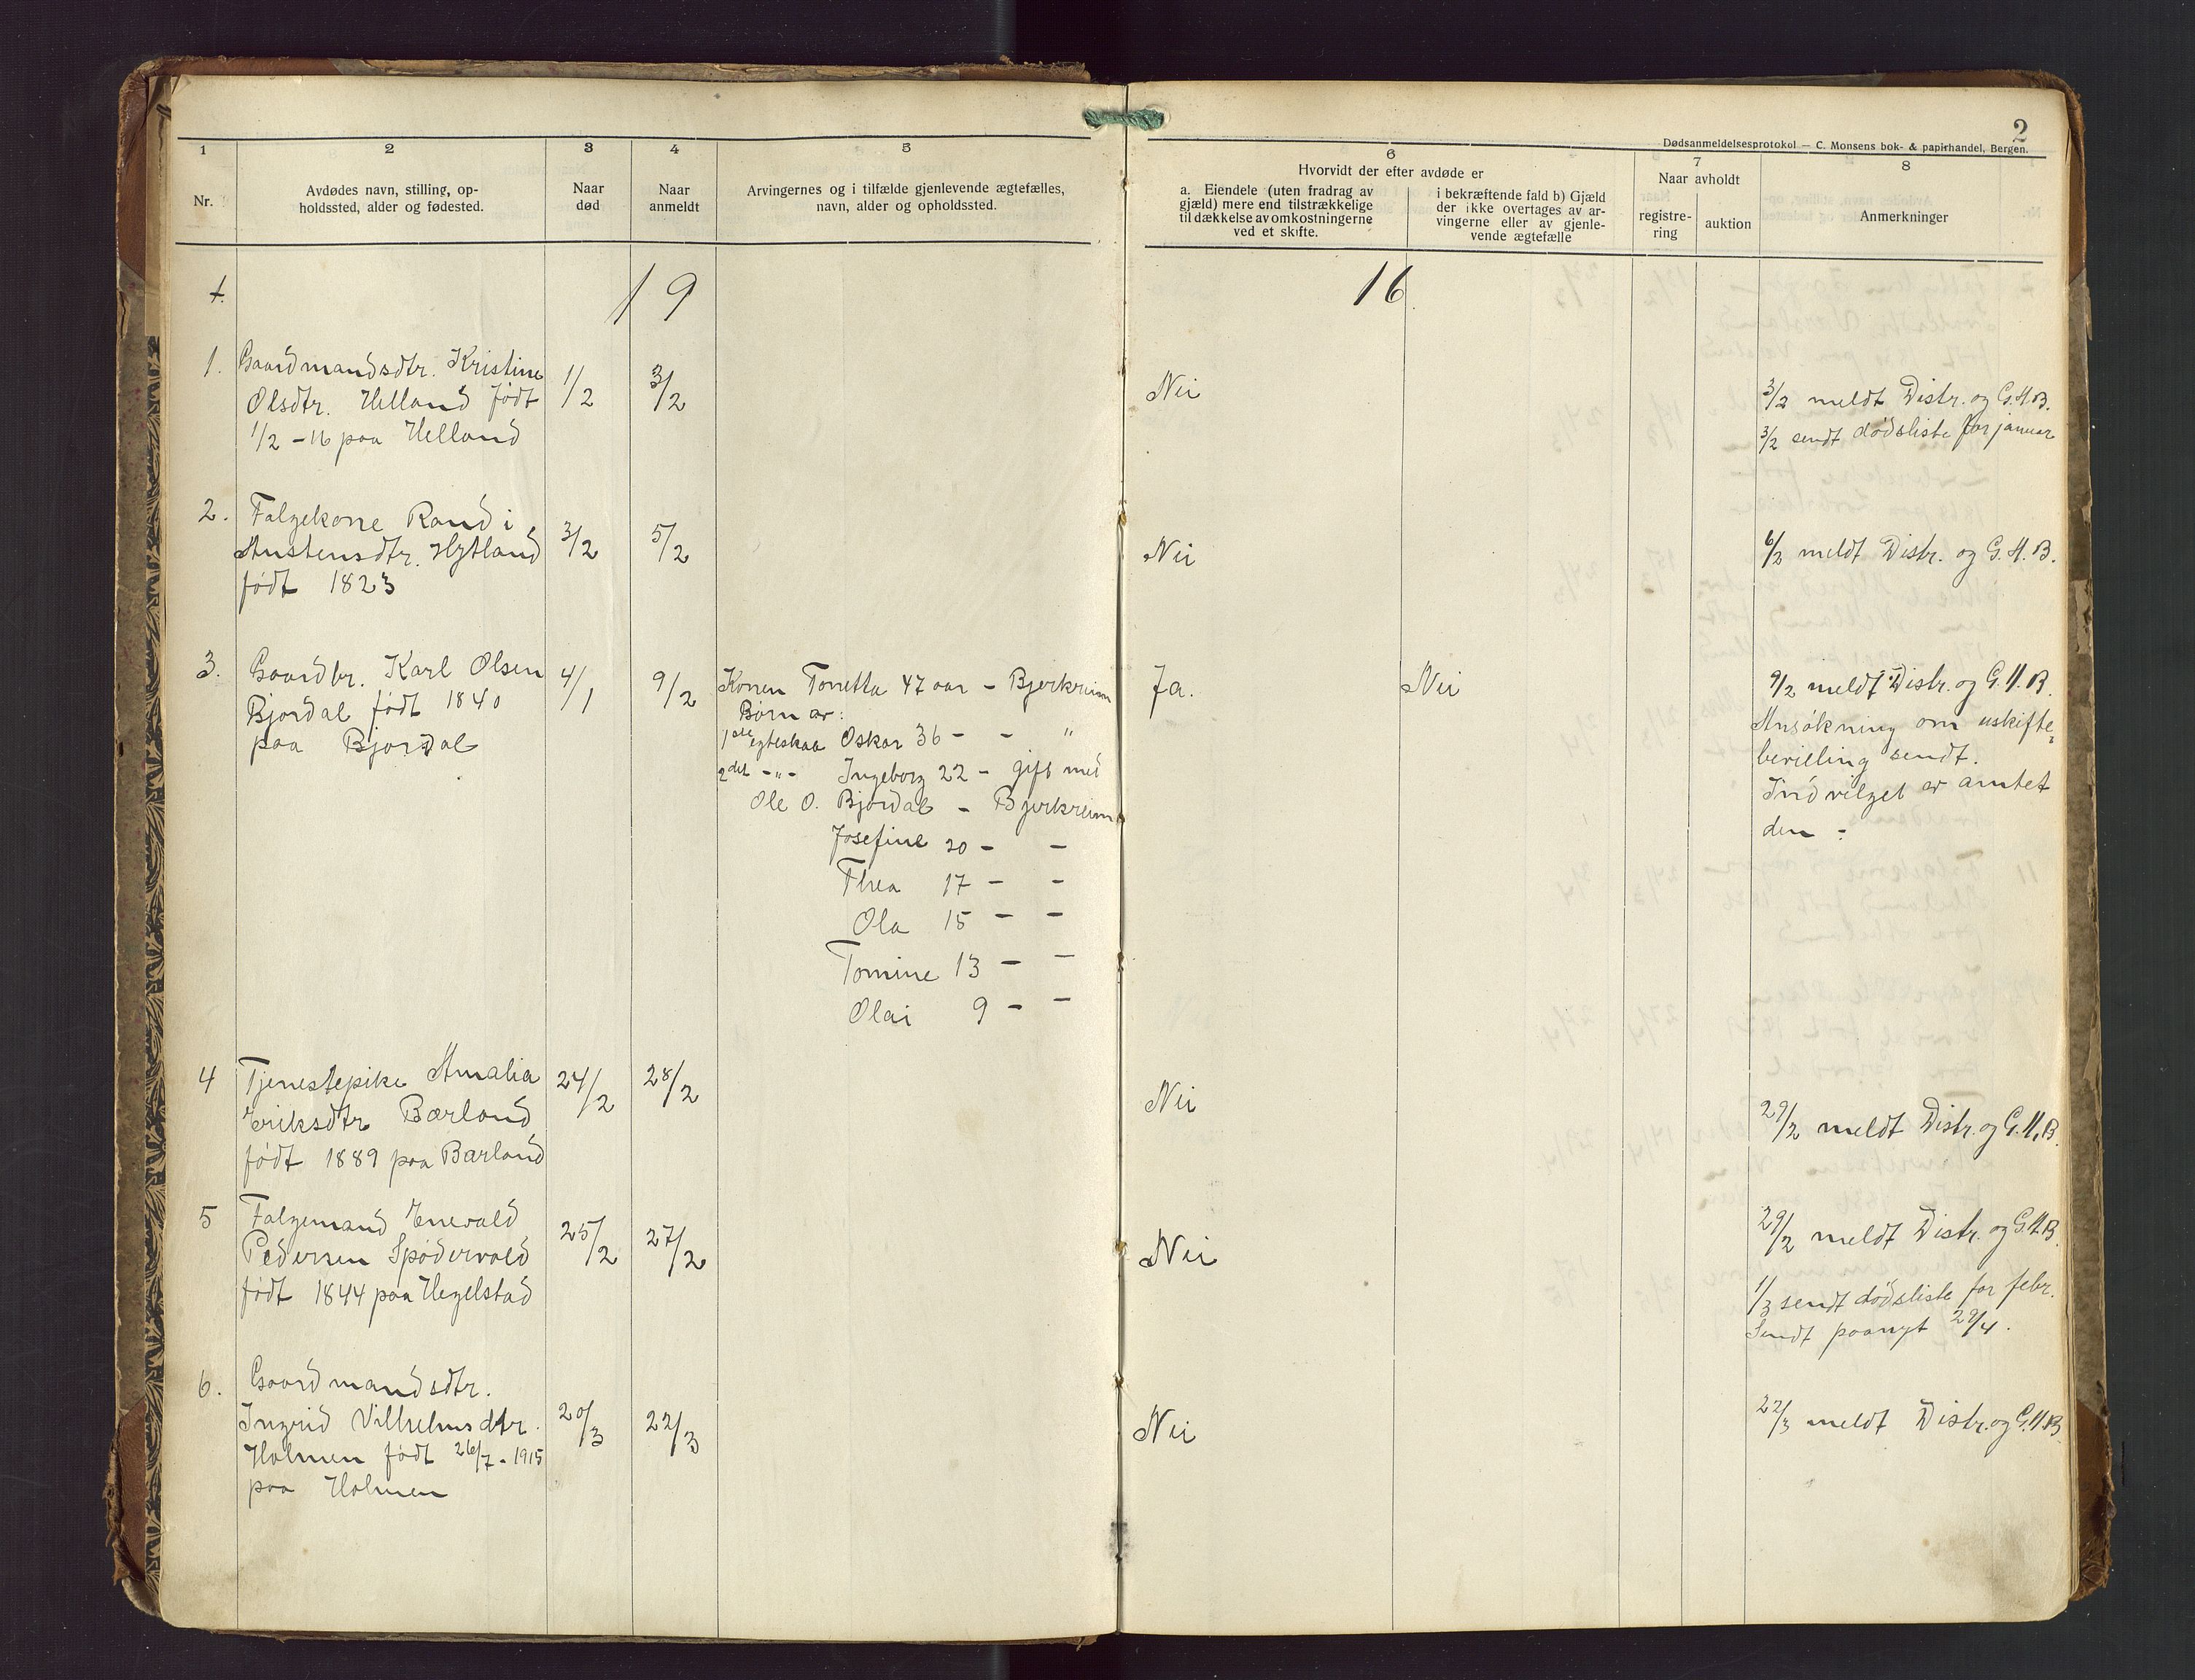 2
Dødsanmeldelsesprotokol — C. Monsens bok- & papirhandel, Bergen.
1
Nr.
2
Avdødes navn, stilling, op-
holdssted, alder og fødested.
3
Naar
død
4
Naar
anmeldt
5
Arvingernes og i tilfælde gjenlevende ægtefælles,
navn, alder og opholdssted.
6
Hvorvidt der efter avdøde er
a. Eiendele (uten fradrag av
gjæld) mere end tilstrækkelige
til dækkelse av omkostningerne
ved et skifte.
i bekræftende fald b) Gjæld
der ikke overtages av ar-
vingerne eller av gjenle-
vende ægtefælle
7
Naar avholdt
registre-
ring
auktion
8
Anmerkninger
1.
19 16
1. Gaardmandsdtr. Kristine 1/2 3/2 Nei
Olsdtr. Helland født
1/2 - 16 paa Helland
3/2 meldt Distr. og G.H.B.
3/2 sendt dødsliste for januar
2. Følgekone Randi 3/2 5/2 Nei
Austensdtr. Hytland
født 1823
6/2 meldt Distr. og G.H.B.
3. Gaardbr. Karl Olsen 4/1 9/2
Bjordal født 1840
paa Bjordal
Konen Tonetta 47 aar - Bjerkreim
Børn av:
1ste egteskab Oskar 36 - - "
2det -"- Ingeborg 22 - gift med
Ole O. Bjordal - Bjerkreim
Josefine 20 - -
Thea 17 - -
Ola 15 - -
Tomine 13 - -
Olai 9 - -
Ja. Nei
9/2 meldt Distr. og G.H.B.
Ansøkning om uskifte-
bevilling sendt.
Indvilget av amtet
den -
4 Tjenestepike Amalia 24/2 28/2 Nei
Eriksdtr Bærland
født 1889 paa Bærland
29/2 meldt Distr. og G.H.B.
5 Følgemand Enevald 25/2 27/2 Nei
Pedersen Spødervold
født 1844 paa Hegelstad
29/2 meldt Distr. og G.H.B.
1/3 sendt dødsliste for febr.
Sendt paanyt 29/4.
6. Gaardmandsdtr. 20/3 22/3 Nei
Ingrid Vilhelmsdtr.
Holmen født 26/7 - 1915
paa Holmen
22/3 meldt Distr. og G.H.B.